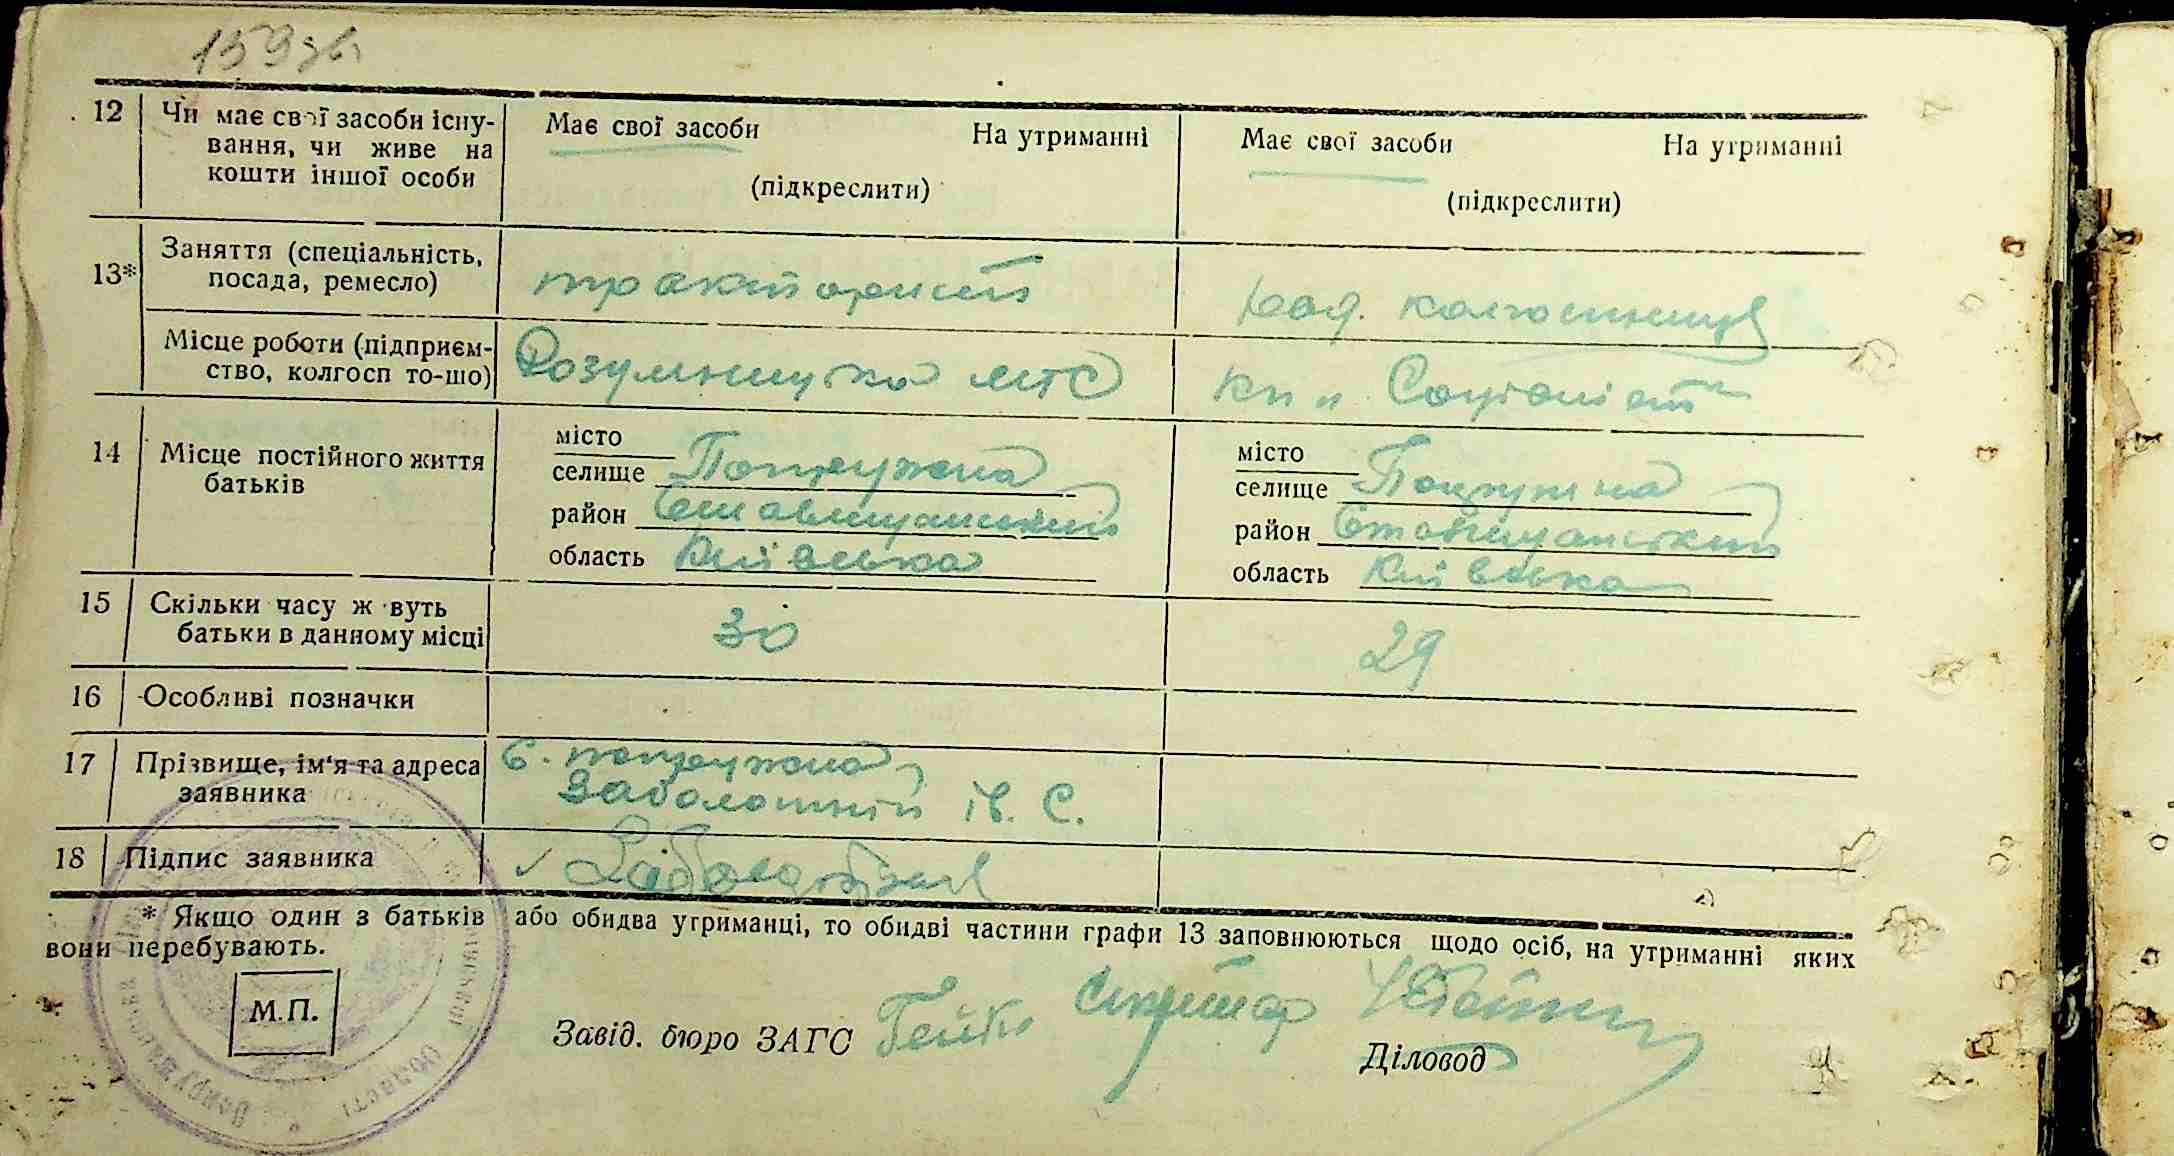 159 зв.
12 Чи має свої засоби існування, чи живе на кошти іншої особи
Має свої засоби На утриманні
(підкреслити)
Має свої засоби На утриманні
(підкреслити)
13* Заняття (спеціальність,
посада, ремесло)
тракторист
колгоспниця
Місце роботи (підприєм-
ство, колгосп то-що)
Розумницька МТС
Соціаліст
14 Місце постійного життя
батьків
місто
селище Потружена
район Ставищанський
область Київська
місто
селище
район Ставищанський
область Київська
15 Скільки часу ж вуть
батьки в данному місці
30
29
16 Особливі позначки
17 Прізвище, ім'я та адреса
заявника
С.
Заболотній Ів. С.
18 Підпис заявника
* Якщо один з батьків або обидва утриманці, то обидві частини графи 13 заповнюються щодо осіб, на утриманні яких
вони перебувають.
М.П.
Завід. бюро ЗАГС Гейко Секретар
Діловод